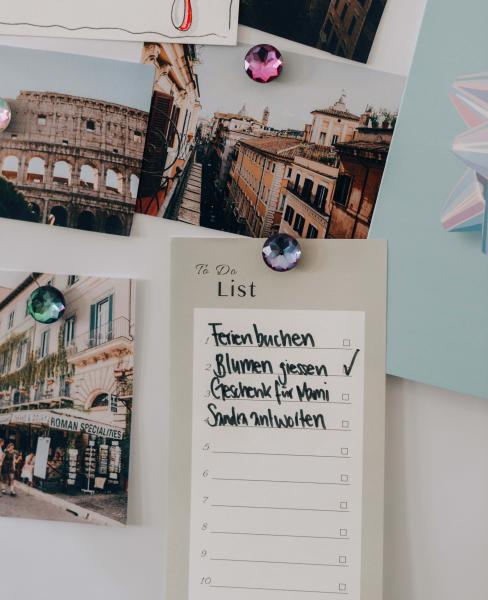 To Do
List
1 Ferien buchen
2 Blumen giessen ✓
3 Geschenk für Mami
4 Sandra antworten
5
6
7
8
9
10
ROMAN SPECIALITIES